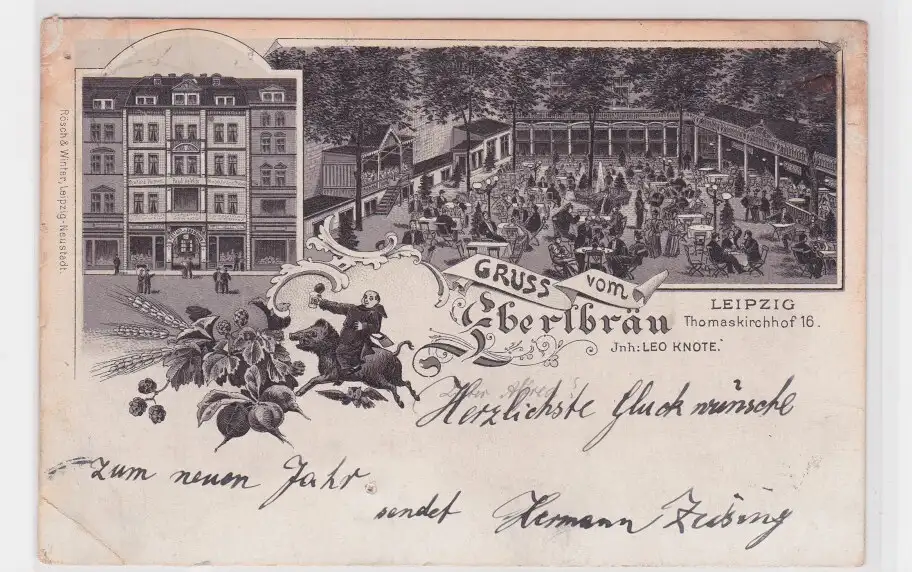 Rösch & Winter, Leipzig-Neustadt.
GRUSS VOM
Eberlbräu
LEIPZIG
Thomaskirchhof 16.
Jnh: LEO KNOTE.
Herzlichste Glückwünsche
zum neuen Jahr
sendet Hermann Zeising